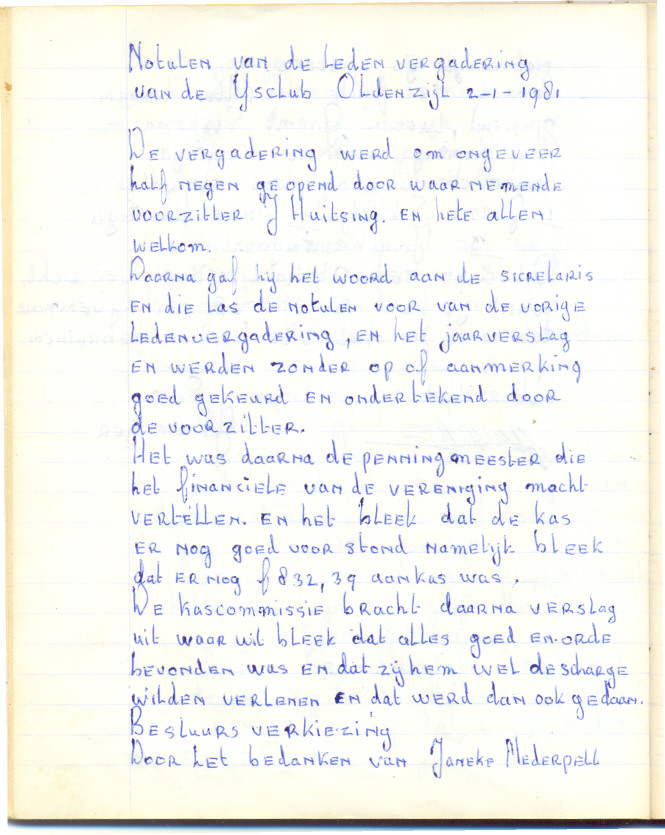 Notulen van de leden vergadering
van de Ysclub Oldenzijl 2-1-1981
De vergadering werd om ongeveer
half negen geopend door waarnemende
voorzitter J Huitsing. En hete allen
welkom.
Daarna gaf hij het woord aan de sicretaris
en die las de notulen voor van de vorige
Ledenvergadering, en het jaarverslag
en werden zonder op of aanmerking
goed gekeurd en ondertekend door
de voorzitter.
Het was daarna de penningmeester die
het financiele van de vereniging macht
vertellen. En het bleek dat de kas
er nog goed voor stond namelijk bleek
dat er nog f 832,39 aan kas was.
De kascommissie bracht daarna verslag
uit waar uit bleek dat alles goed en orde
bevonden was en dat zij hem wel descharge
wilden verlenen en dat werd dan ook gedaan.
Bestuurs verkiezing
Door het bedanken van Janeke Mederpell